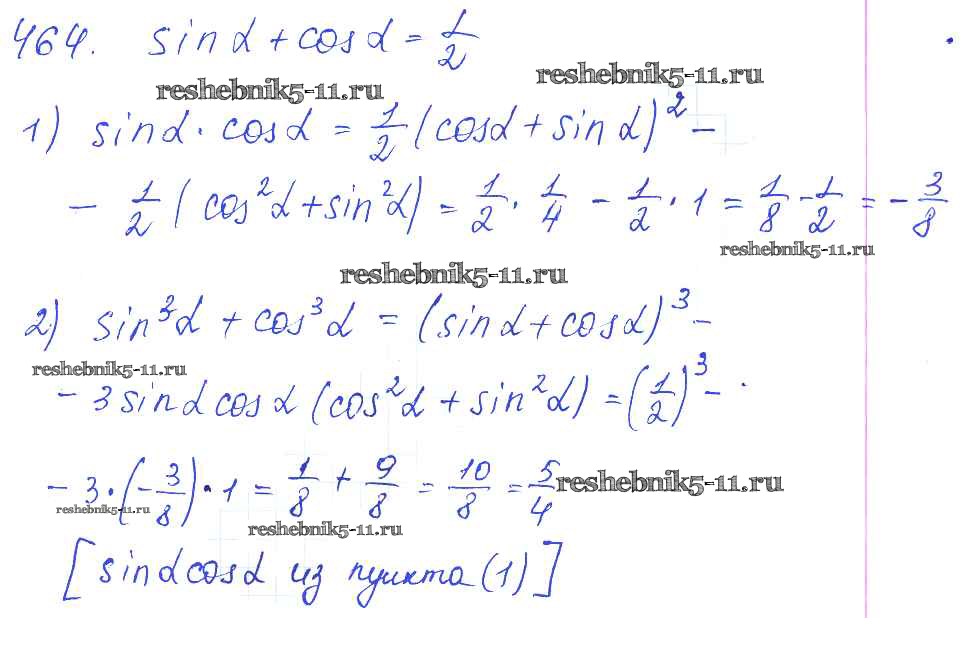 464. sin α + cos α = 1/2
reshebnik5-11.ru
reshebnik5-11.ru
1) sin α · cos α = 1/2 (cos α + sin α)² −
− 1/2 (cos²α + sin²α) = 1/2 · 1/4 − 1/2 · 1 = 1/8 − 1/2 = − 3/8
reshebnik5-11.ru
reshebnik5-11.ru
2) sin³α + cos³α = (sin α + cos α)³ −
reshebnik5-11.ru
− 3 sin α cos α (cos²α + sin²α) = (1/2)³ −
− 3 · (− 3/8) · 1 = 1/8 + 9/8 = 10/8 = 5/4
reshebnik5-11.ru
reshebnik5-11.ru
reshebnik5-11.ru
[sin α cos α из пункта (1)]